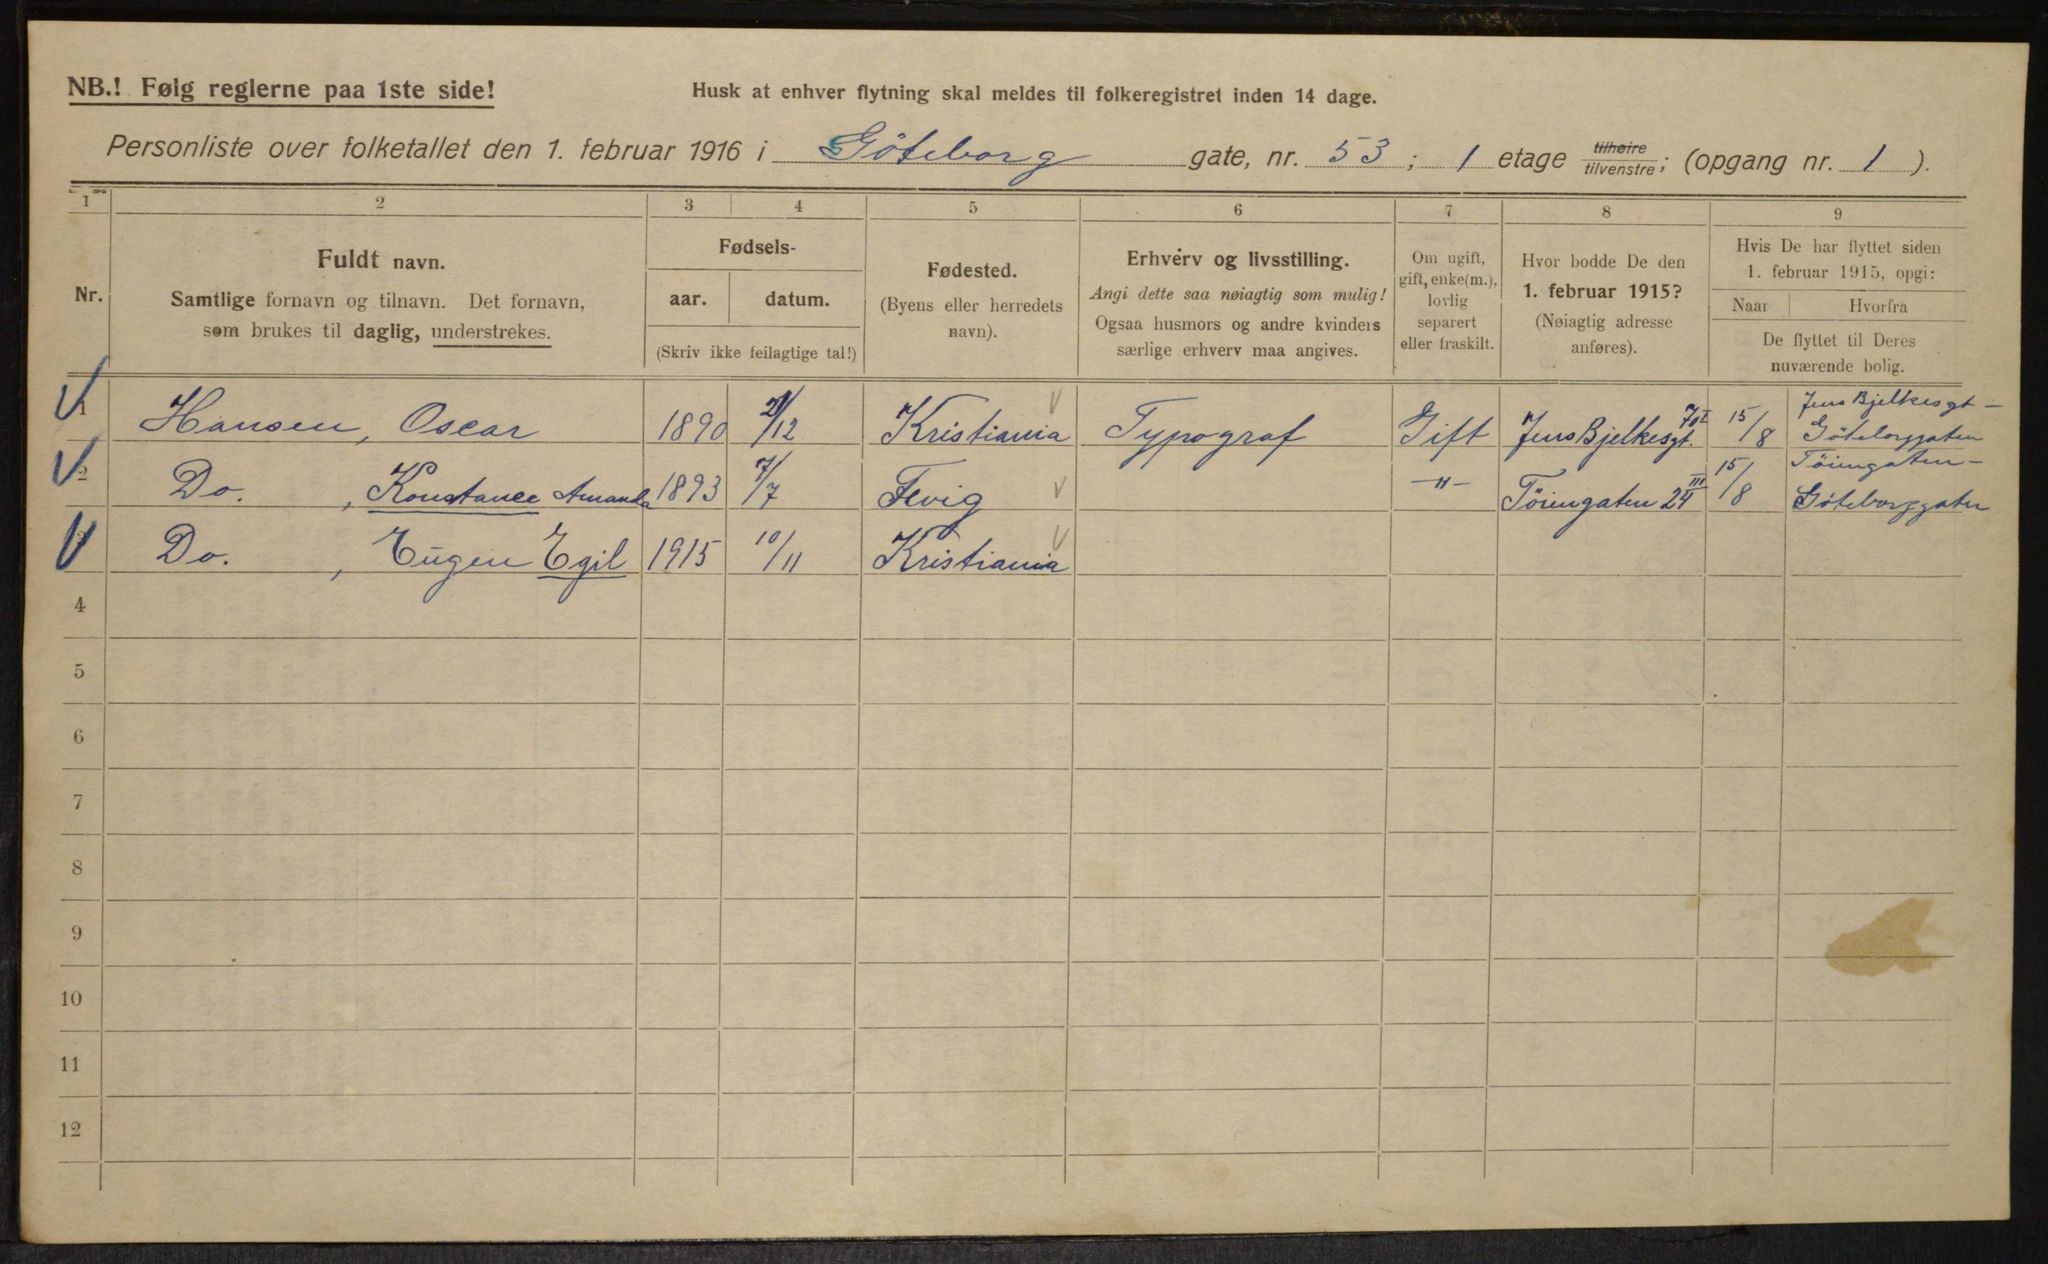 NB.! Følg reglerne paa 1ste side!
Husk at enhver flytning skal meldes til folkeregistret inden 14 dage.
Personliste over folketallet den 1. februar 1916 i Göteborg gate, nr. 53; 1 etage tilhøire/tilvenstre; (opgang nr. 1).
1 2 3 4 5 6 7 8 9
Nr.
Fuldt navn.
Samtlige fornavn og tilnavn. Det fornavn,
som brukes til daglig, understrekes.
Fødsels-
aar. datum.
(Skriv ikke feilagtige tal!)
Fødested.
(Byens eller herredets
navn).
Erhverv og livsstilling.
Angi dette saa nøiagtig som mulig!
Ogsaa husmors og andre kvinders
særlige erhverv maa angives.
Om ugift,
gift, enke(m.),
lovlig
separert
eller fraskilt.
Hvor bodde De den
1. februar 1915?
(Nøiagtig adresse
anføres).
Hvis De har flyttet siden
1. februar 1915, opgi:
Naar Hvorfra
De flyttet til Deres
nuværende bolig.
1 Hansen, Oscar 1890 /12 Kristiania Typograf Gift Jens Bjelkesgt. 70 I 15/8 Jens Bjelkesgt - Göteborggaten
2 Do. , Konstance Amanda 1893 7/7 Fevig -"- Töiengaten 24 III 15/8 Töiengaten - Göteborggaten
3 Do. , Eugen Egil 1915 10/11 Kristiania
4
5
6
7
8
9
10
11
12